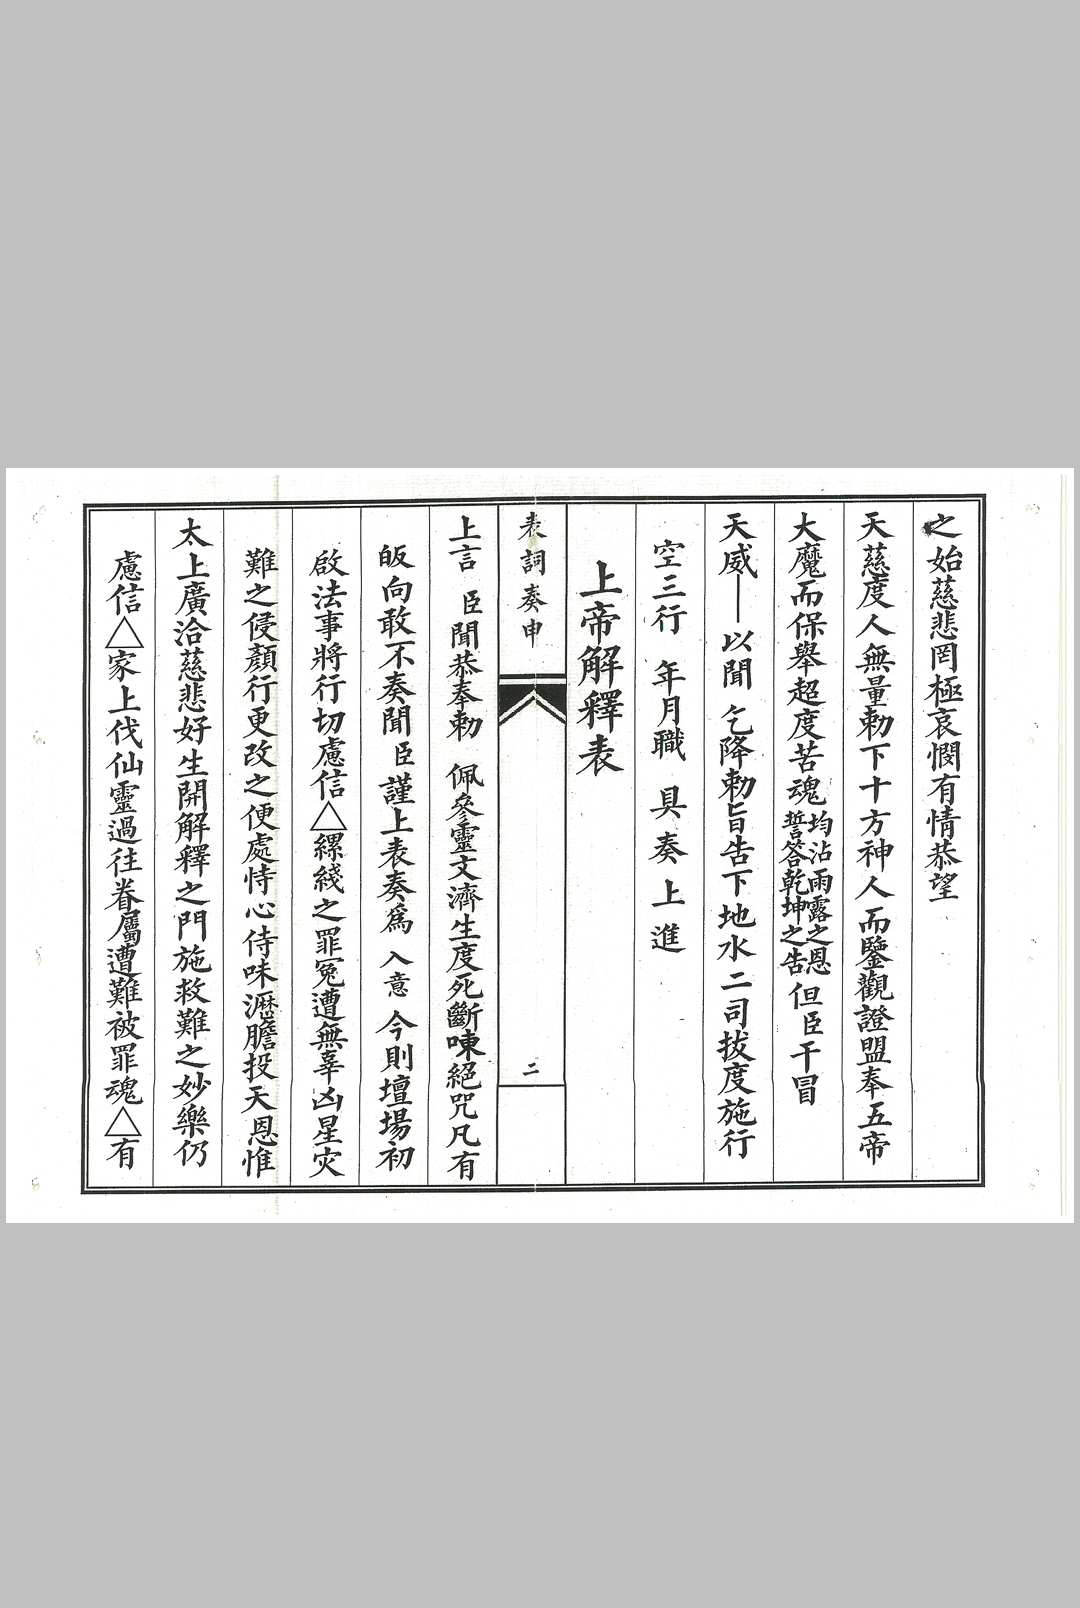 之始慈悲罔極哀憫有情恭望
天慈度人無量勅下十方神人而鑒觀證盟奉五帝
大魔而保舉超度苦魂均沾雨露之恩誓答乾坤之告但臣干冒
天威——以聞 乞降勅旨告下地水二司拔度施行
空三行 年月職 具奏上進
上帝解釋表
表詞奏申 二
上言 臣聞恭奉勅 佩參靈文濟生度死斷㖦絕咒凡有
皈向敢不奏聞臣謹上表奏爲 入意 今則壇場初
啟法事將行切慮信△縲綫之罪冤遭無辜凶星灾
難之侵顏行更改之便處恃心侍味瀝膽投天恩惟
太上廣洽慈悲好生開解釋之門施救難之妙樂仍
慮信△家上伐仙靈過往眷屬遭難被罪魂△有